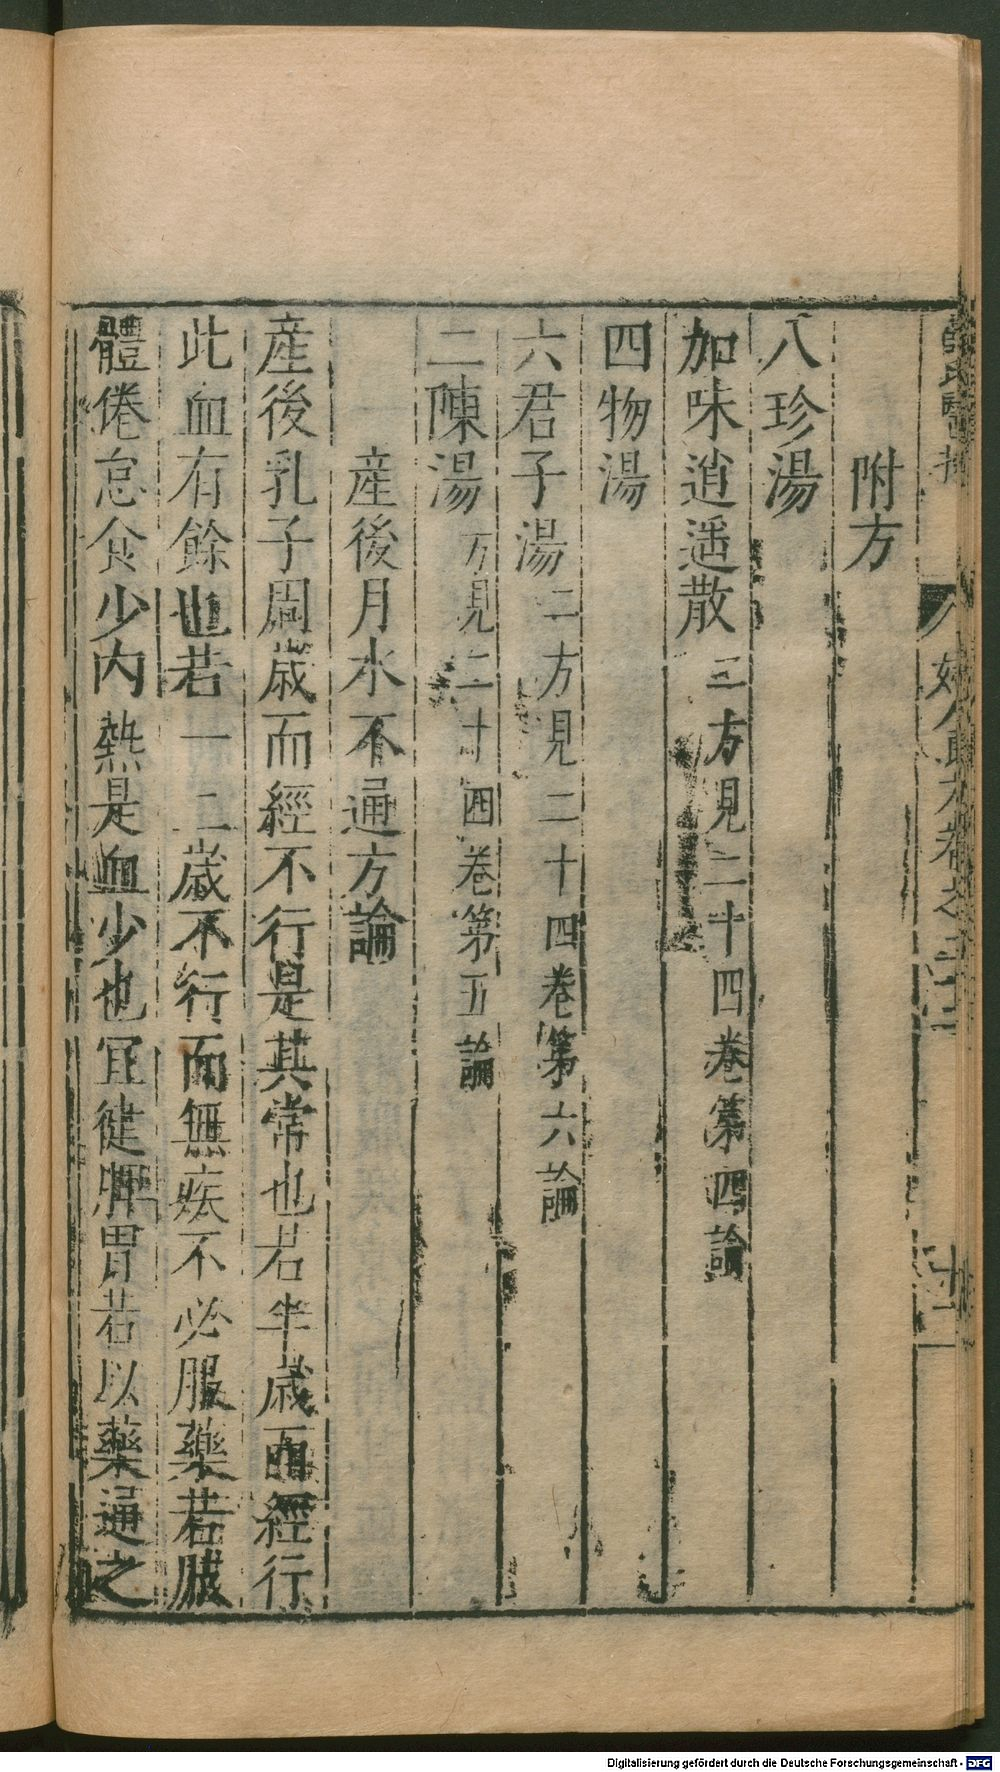 附方
八珍湯
加味逍遥散 三方見二十四卷第四論
四物湯
六君子湯 二方見二十四卷第六論
二陳湯 方見二十四卷第五論
産後月水不通方論
産後乳子周歲而經不行是其常也若半歲而經行
此血有餘也若一二歲不行而無疾不必服藥若肢
體倦怠食少内熱是血少也宜健脾胃若以藥通之
Digitalisierung gefördert durch die Deutsche Forschungsgemeinschaft - DFG